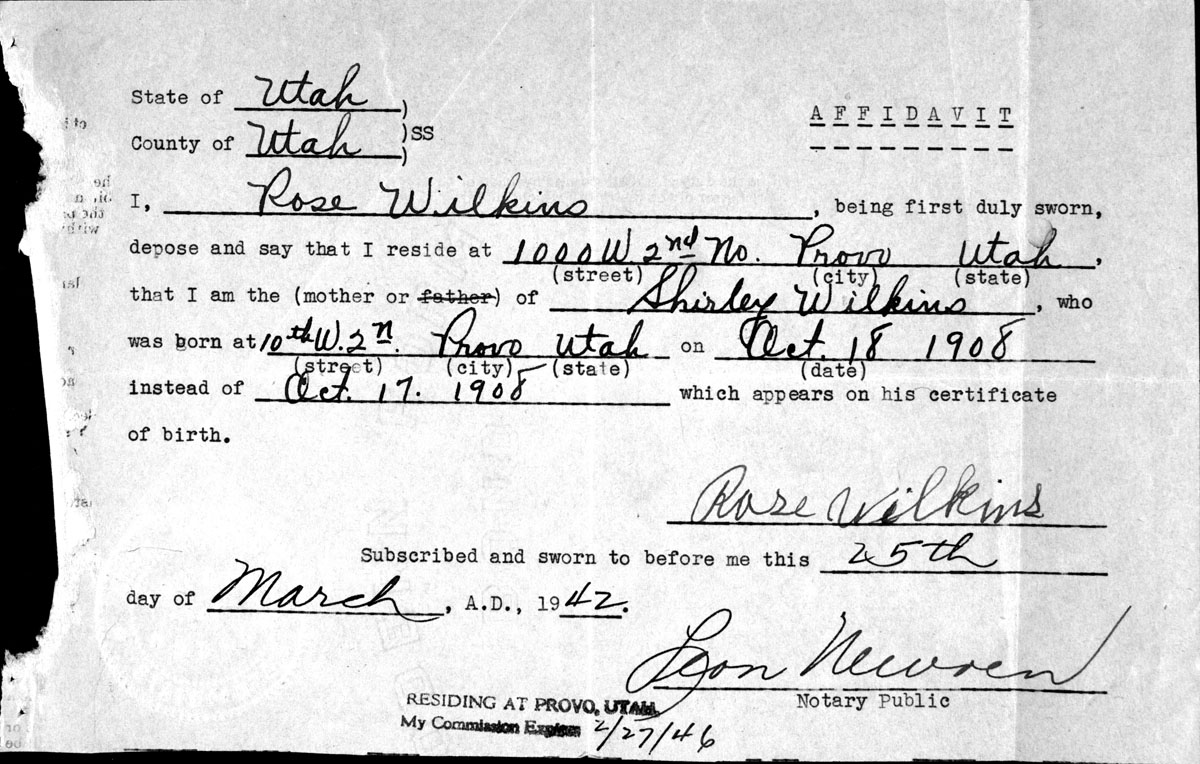 State of Utah )
A F F I D A V I T
County of Utah )SS
I, Rose Wilkins, being first duly sworn,
depose and say that I reside at 1000 W. 2nd No. Provo Utah,
(street) (city) (state)
that I am the (mother or father) of Shirley Wilkins, who
was born at 10th W. 2n. Provo Utah on Oct. 18 1908
(street) (city) (state) (date)
instead of Oct. 17. 1908 which appears on his certificate
of birth.
Rose Wilkins
Subscribed and sworn to before me this 25th
day of March, A.D., 1942.
Leon Newren
Notary Public
RESIDING AT PROVO, UTAH
My Commission Expires 2/27/46